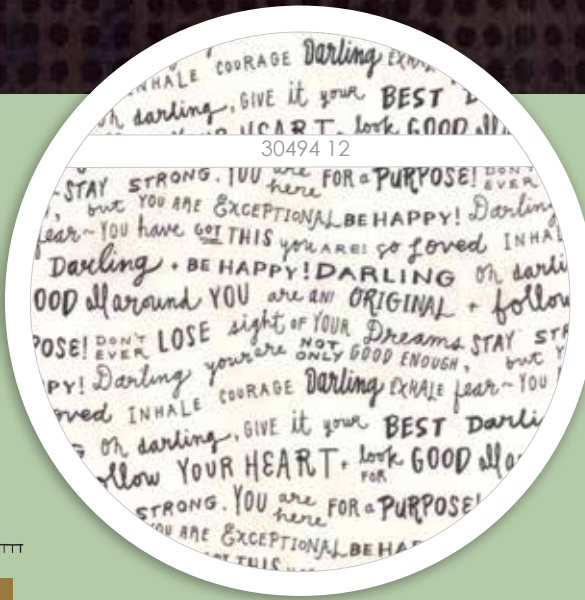 INHALE COURAGE Darling EXHA
oh darling, GIVE it your BEST D
YOUR HEART. look GOOD all
30494 12
STAY STRONG. YOU are here FOR a PURPOSE! DON'T EVER
, but YOU ARE EXCEPTIONAL BE HAPPY! Darling
fear~YOU have GOT THIS you ARE! so Loved INHAL
Darling • BE HAPPY! DARLING oh darli
OOD all around YOU are an ORIGINAL + follow
POSE! DON'T EVER LOSE sight OF YOUR Dreams STAY STR
PY! Darling you are NOT ONLY GOOD ENOUGH, but Y
oved INHALE COURAGE Darling EXHALE fear~YOU
oh darling, GIVE it your BEST Darli
ollow YOUR HEART. look FOR GOOD all a
STRONG. YOU are here FOR a PURPOSE!
YOU ARE EXCEPTIONAL BE HAP
GOT THIS